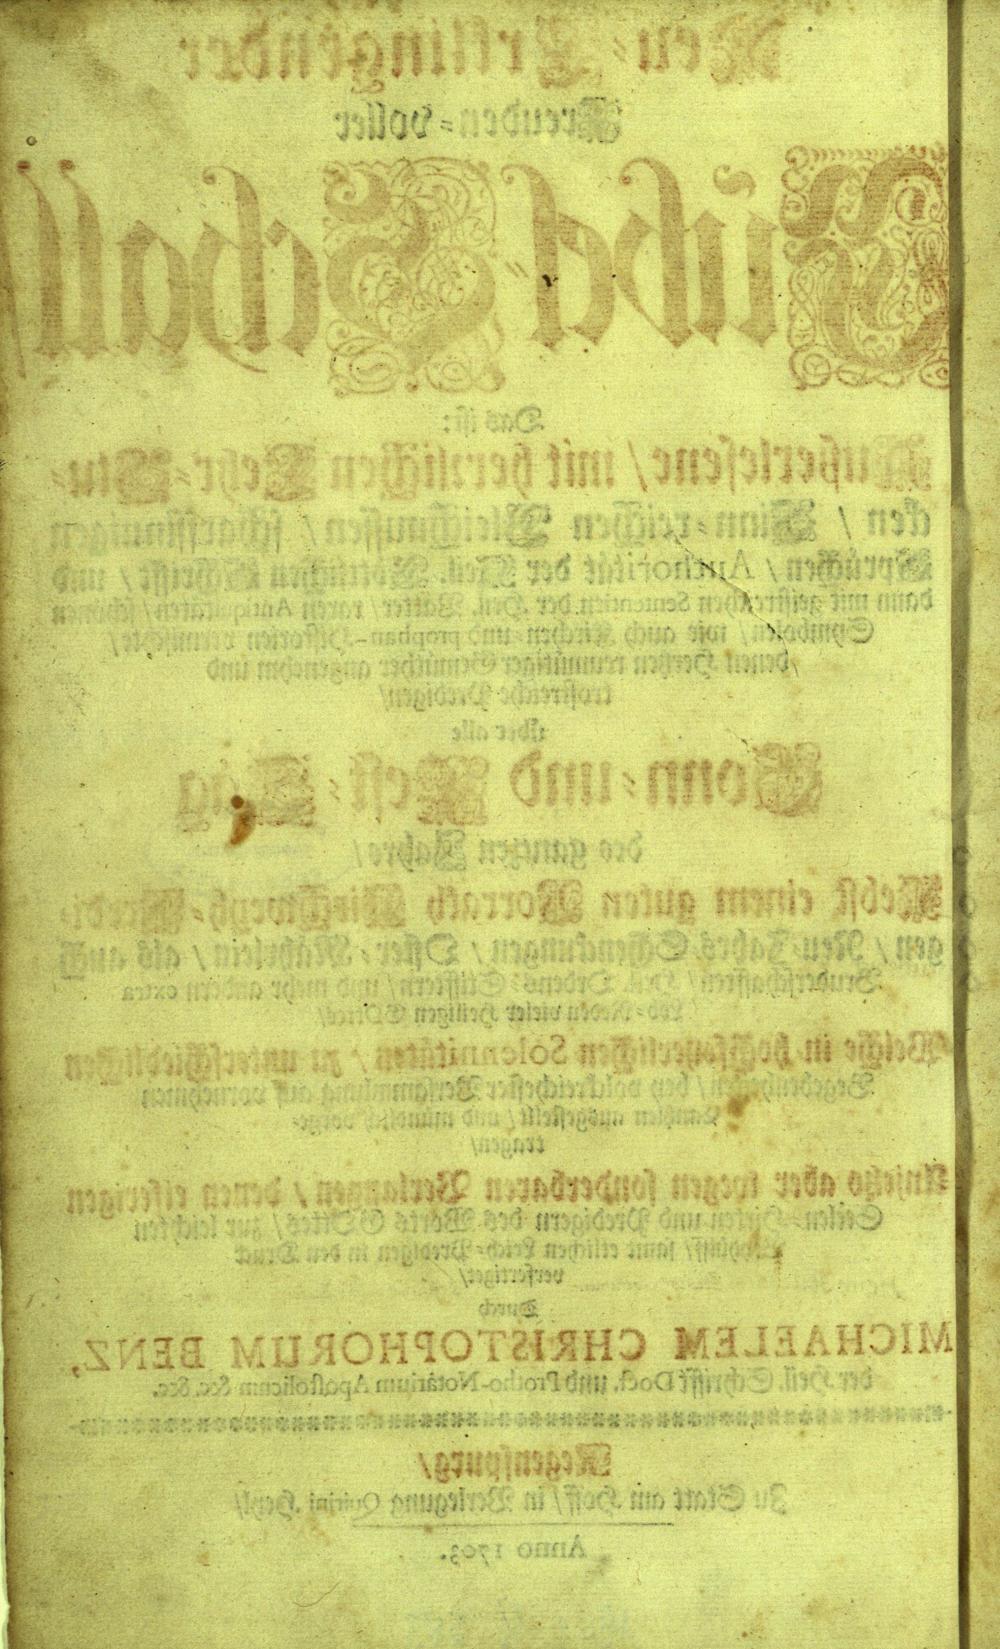 Neu-Erklingender
Freuden-voller
Jubel-Schall/
Das ist:
Außerlesene/ mit herrlichen Lehr-Stu-
cken / Sinn-reichen Gleichnussen/ scharffsinnigen
Sprüchen/ Authorität der Heil. Göttlichen Schrifft/ und
dann mit geistreichen Sententien der Heil. Vätter/ raren Antiquitäten/ schönen
Symbolen/ wie auch Kirchen- und prophan-Historien vermischte/
denen Hertzen reumütiger Gemüther angenehm und
trostreiche Predigen/
über alle
Sonn-und Fest-Täg
des gantzen Jahrs/
Nebst einem guten Vorrath Kirchweyh-Predi-
gen/ Neu-Jahrs Schenckungen/ Oster-Mährlein/ als auch
Bruderschafften/ Heil. Ordens-Stifftern/ und mehr andern extra
Lob-Reden vieler Heiligen GOttes/
Welche in hochfeyerlichen Solennitäten/ zu unterschiedlichen
Begebenheiten/ bey volckreichester Versammlung auf vornehmen
Cantzlen ausgestellt/ und mündlich vorge-
tragen/
Anjetzo aber wegen sonderbaren Verlangen/ denen eiferigen
Seelen-Hirten und Predigern des Worts GOttes/ zur leichten
samt etlichen Leich-Predigen in den Druck
verfertiget/
Durch
MICHAELEM CHRISTOPHORUM BENZ,
der Heil. Schrifft Doct. und Protho-Notarium Apostolicum &c. &c.
Regenspurg/
Zu Statt am Hoff/ in Verlegung Quirini Heyl/
Anno 1703.